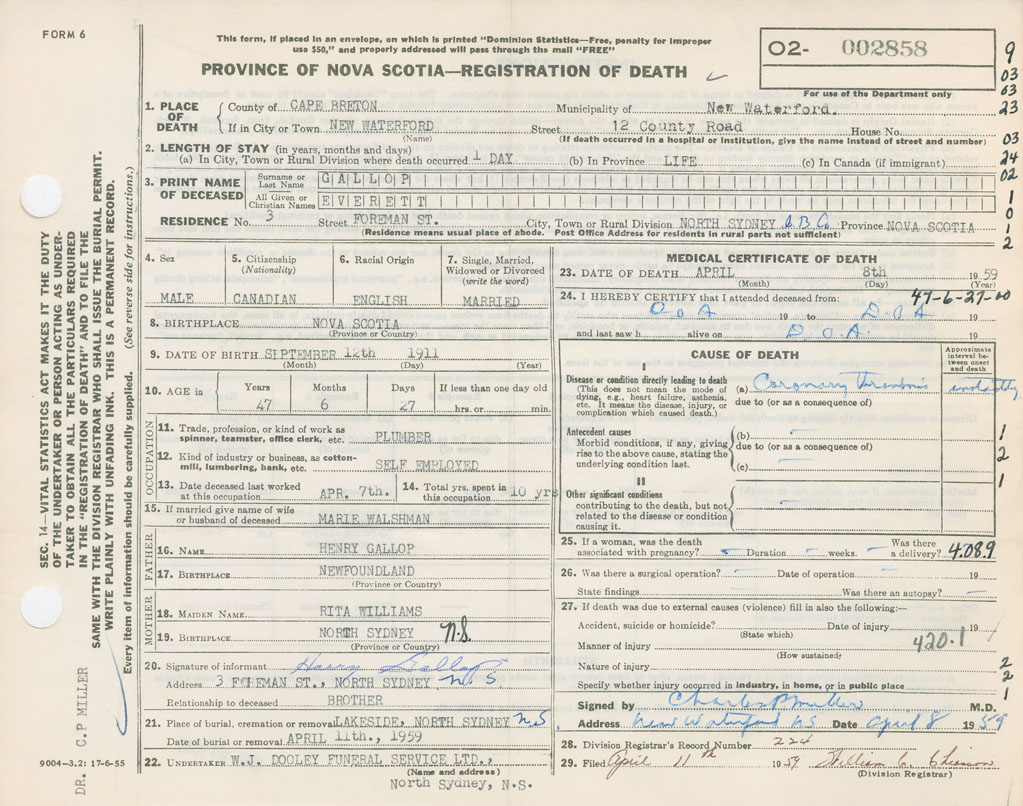 FORM 6
This form, if placed in an envelope, on which is printed "Dominion Statistics—Free, penalty for improper
use $50," and properly addressed will pass through the mail "FREE"
PROVINCE OF NOVA SCOTIA—REGISTRATION OF DEATH ✓
O2- 002858
For use of the Department only
9
03
03
23
03
24
02
1
0
1
2
1. PLACE OF DEATH
County of CAPE BRETON Municipality of New Waterford.
If in City or Town NEW WATERFORD Street 12 County Road House No.
(Name) (If death occurred in a hospital or institution, give the name instead of street and number)
2. LENGTH OF STAY (in years, months and days)
(a) In City, Town or Rural Division where death occurred 1 DAY (b) In Province LIFE (c) In Canada (if immigrant)
3. PRINT NAME OF DECEASED
Surname or Last Name GALLOP
All Given or Christian Names EVERETT
RESIDENCE No. 3 Street FOREMAN ST. City, Town or Rural Division NORTH SYDNEY C.B.C. Province NOVA SCOTIA
(Residence means usual place of abode. Post Office Address for residents in rural parts not sufficient)
4. Sex 5. Citizenship (Nationality) 6. Racial Origin 7. Single, Married, Widowed or Divorced (write the word)
MALE CANADIAN ENGLISH MARRIED
8. BIRTHPLACE NOVA SCOTIA
(Province or Country)
9. DATE OF BIRTH SEPTEMBER 12th 1911
(Month) (Day) (Year)
10. AGE in Years Months Days If less than one day old
47 6 27 hrs. or min.
OCCUPATION
11. Trade, profession, or kind of work as spinner, teamster, office clerk, etc. PLUMBER
12. Kind of industry or business, as cotton-mill, lumbering, bank, etc. SELF EMPLOYED
13. Date deceased last worked at this occupation APR. 7th. 14. Total yrs. spent in this occupation 10 yrs
15. If married give name of wife or husband of deceased MARIE WALSHMAN
FATHER
16. NAME HENRY GALLOP
17. BIRTHPLACE NEWFOUNDLAND
(Province or Country)
MOTHER
18. MAIDEN NAME RITA WILLIAMS
19. BIRTHPLACE NORTH SYDNEY N.S.
(Province or Country)
20. Signature of informant Harry Gallop
Address 3 FOREMAN ST., NORTH SYDNEY N.S
Relationship to deceased BROTHER
21. Place of burial, cremation or removal LAKESIDE, NORTH SYDNEY N.S
Date of burial or removal APRIL 11th., 1959
22. UNDERTAKER W.J. DOOLEY FUNERAL SERVICE LTD.,
(Name and address)
North Sydney, N.S.
MEDICAL CERTIFICATE OF DEATH
23. DATE OF DEATH APRIL 8th 1959
(Month) (Day) (Year)
24. I HEREBY CERTIFY that I attended deceased from: 47-6-27-00
D O A 19 to D.O.A 19
and last saw h alive on D.O.A. 19
CAUSE OF DEATH
Approximate interval between onset and death
I
Disease or condition directly leading to death
(This does not mean the mode of dying, e.g., heart failure, asthenia, etc. It means the disease, injury, or complication which caused death.)
(a) Coronary Thrombosis instantly
due to (or as a consequence of)
Antecedent causes
Morbid conditions, if any, giving rise to the above cause, stating the underlying condition last.
(b) —
due to (or as a consequence of)
(c) —
1
2
1
II
Other significant conditions
contributing to the death, but not related to the disease or condition causing it.
25. If a woman, was the death associated with pregnancy? — Duration — weeks. — Was there a delivery? 4.089
26. Was there a surgical operation? — Date of operation — 19
State findings Was there an autopsy? —
27. If death was due to external causes (violence) fill in also the following:—
Accident, suicide or homicide? Date of injury 19
(State which)
Manner of injury 420.1
(How sustained)
Nature of injury
Specify whether injury occurred in industry, in home, or in public place
2
2
1
Signed by Charles P Miller M.D.
Address New Waterford NS Date April 8 1959
28. Division Registrar's Record Number 224
29. Filed April 11th 1959 William C.
(Division Registrar)
SEC. 14—VITAL STATISTICS ACT MAKES IT THE DUTY
OF THE UNDERTAKER OR PERSON ACTING AS UNDER-
TAKER TO OBTAIN ALL THE PARTICULARS REQUIRED
IN THE "REGISTRATION OF DEATH" AND TO FILE THE
SAME WITH THE DIVISION REGISTRAR WHO SHALL ISSUE THE BURIAL PERMIT.
WRITE PLAINLY WITH UNFADING INK. THIS IS A PERMANENT RECORD.
Every item of information should be carefully supplied. (See reverse side for instructions.)
DR. C.P MILLER
9004-3.2: 17-6-55